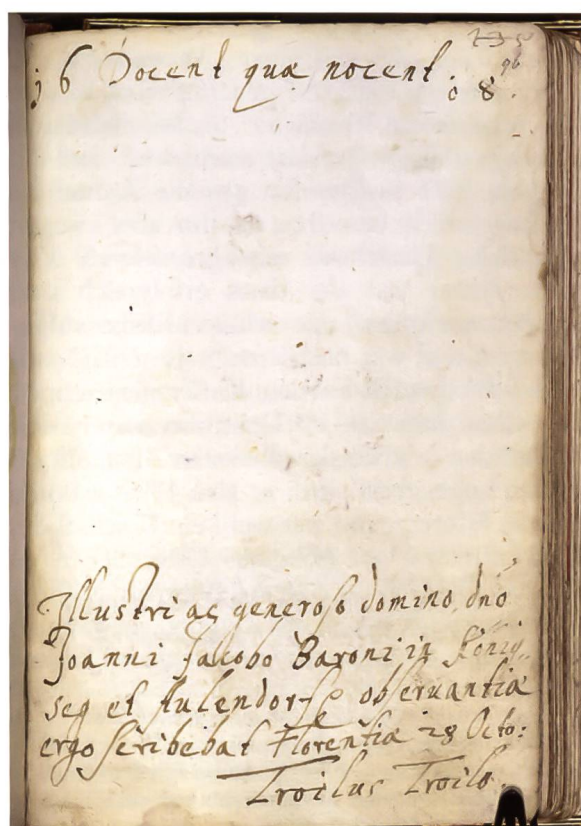 16 Docent quæ nocent. 08.
96
Illustri ac generoso domino dnō
Joanni Jacobo Baroni in König-
seg et Aulendorff observantiæ
ergo scribebat Florentiæ 28 Octo:
Troilus Troilo.